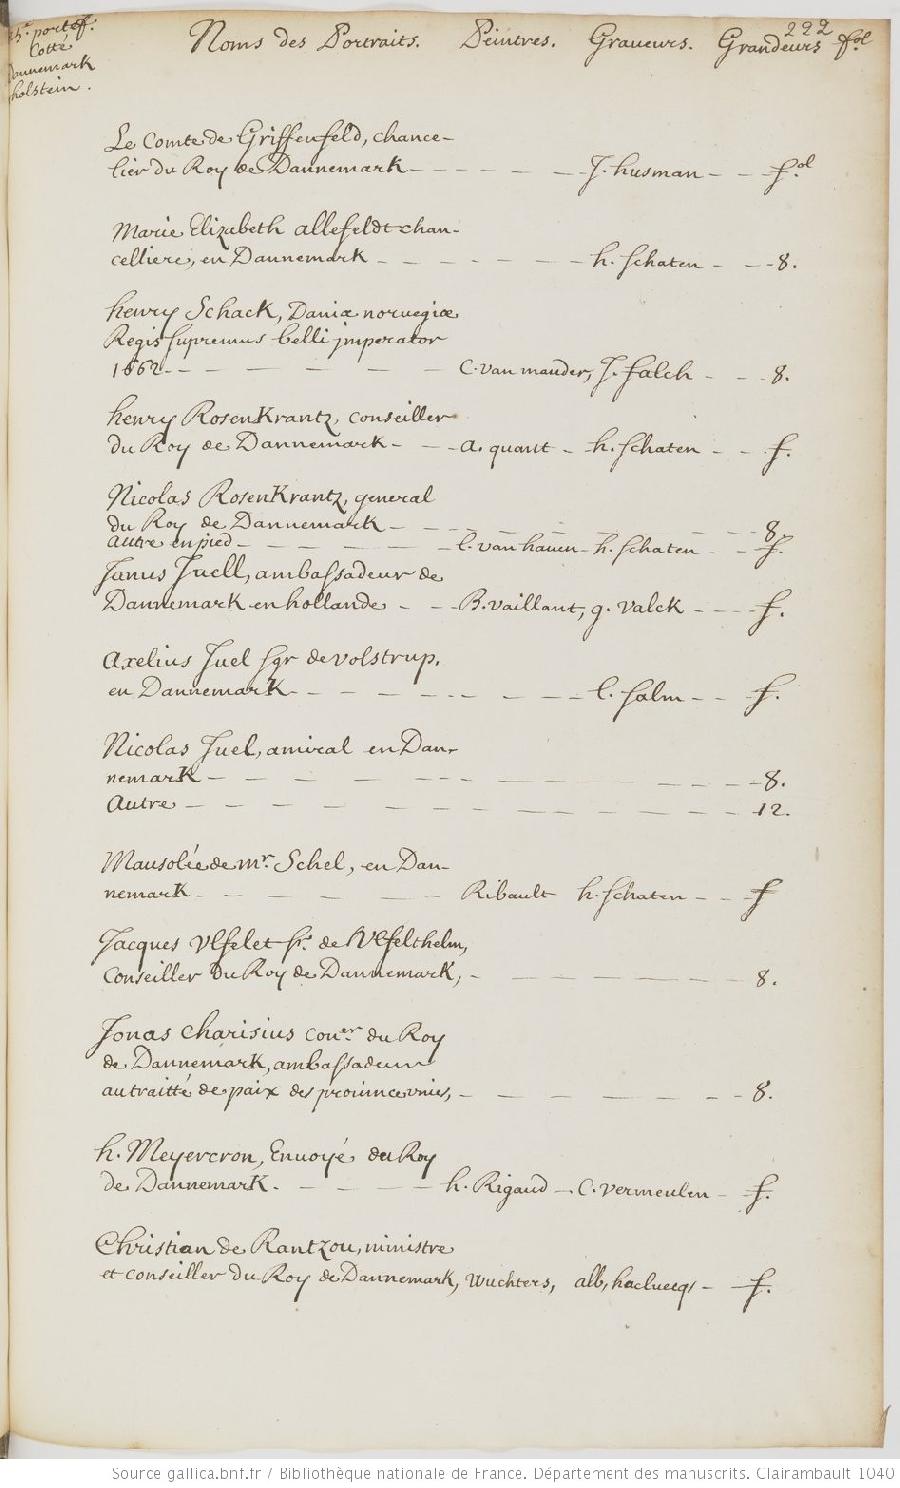 292
portef.
Cotté
Dannemark
holstein.
Noms des Portraits. Peintres. Graveurs. Grandeurs fol
Le Comte de Griffenfeld, chance-
lier du Roy de Dannemark - - - - - - J. husman - - fol
Marie Elizabeth allefeldt chan-
celliere, en Dannemark - - - - - - h. schaten - - 8.
henry Schack, Daniæ norvegiæ
Regis supremus belli imperator
1662. - - - - - C. van mander, J. falch - - 8.
henry RosenKrantz, conseiller
du Roy de Dannemark - - a. quant - h. schaten - - f.
Nicolas RosenKrantz, general
du Roy de Dannemark - - - - - - 8.
autre en pied - - - - - l. van haven - h. schaten - - f.
Janus Juell, ambassadeur de
Dannemark en hollande - - B. vaillant, g. valck - - - f.
Axelius Juel sgr de volstrup,
en Dannemark - - - - - - - - l. salm - - f.
Nicolas Juel, amiral en Dan-
nemark - - - - - - - - - - 8.
autre - - - - - - - - - - 12.
Mausolée de mr. Schel, en Dan-
nemark - - - - - Ribault h. schaten - - f
Jacques Ulfelet sr. de Ulfelthelm,
Conseiller du Roy de Dannemark, - - - - - - 8.
Jonas Charisius coner. du Roy
de Dannemark, ambassadeur
au traitté de paix des provinces unies, - - - - - - - 8.
h. Meyercron, Envoyé du Roy
de Dannemark. - - - - - h. Rigaud - C. vermeulen - f.
Christian de Rantzou, ministre
et conseiller du Roy de Dannemark, wuchters, alb, haelwegs - f.
Source gallica.bnf.fr / Bibliothèque nationale de France. Département des manuscrits. Clairambault 1040